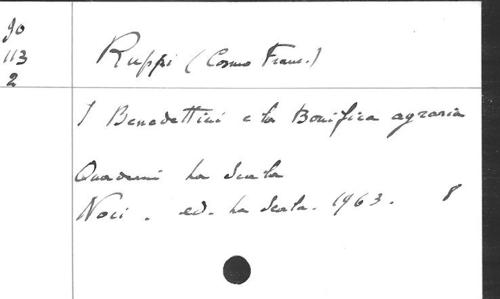 90
113
2
Ruppi (Cosmo Franc.)
I Benedettini e la Bonifica agraria
Quaderni La Scala
Noci. ed. La Scala. 1963. 8